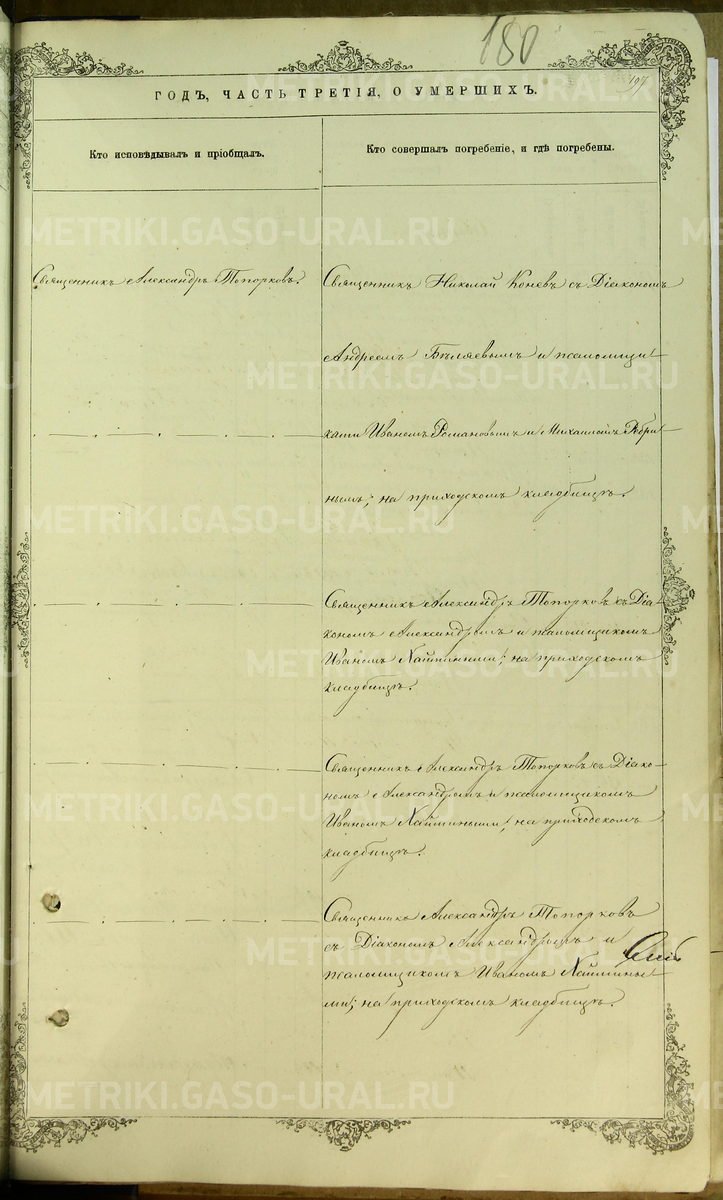 180
197
ГОДЪ, ЧАСТЬ ТРЕТІЯ, О УМЕРШИХЪ.
Кто исповѣдывалъ и пріобщалъ.
Кто совершалъ погребеніе, и гдѣ погребены.
Священникъ Александръ Топорковъ.
Священникъ Николай Коневъ съ Діакономъ
Андреемъ Бѣляевымъ и псаломщи-
ками Иваномъ Романовымъ и Михаиломъ
нымъ; на приходскомъ кладбищѣ.
Священникъ Александръ Топорковъ съ Діа-
кономъ Александромъ и псаломщикомъ
Иваномъ Хаймиными; на приходскомъ
кладбищѣ.
Священникъ Александръ Топорковъ съ Діако-
номъ Александромъ и псаломщикомъ
Иваномъ Хаймиными; на приходскомъ
кладбищѣ.
Священникъ Александръ Топорковъ
съ Діакономъ Александромъ и
псаломщикомъ Иваномъ Хаймины-
ми; на приходскомъ кладбищѣ.
METRIKI.GASO-URAL.RU